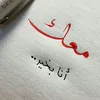 معك
أنا بخير..